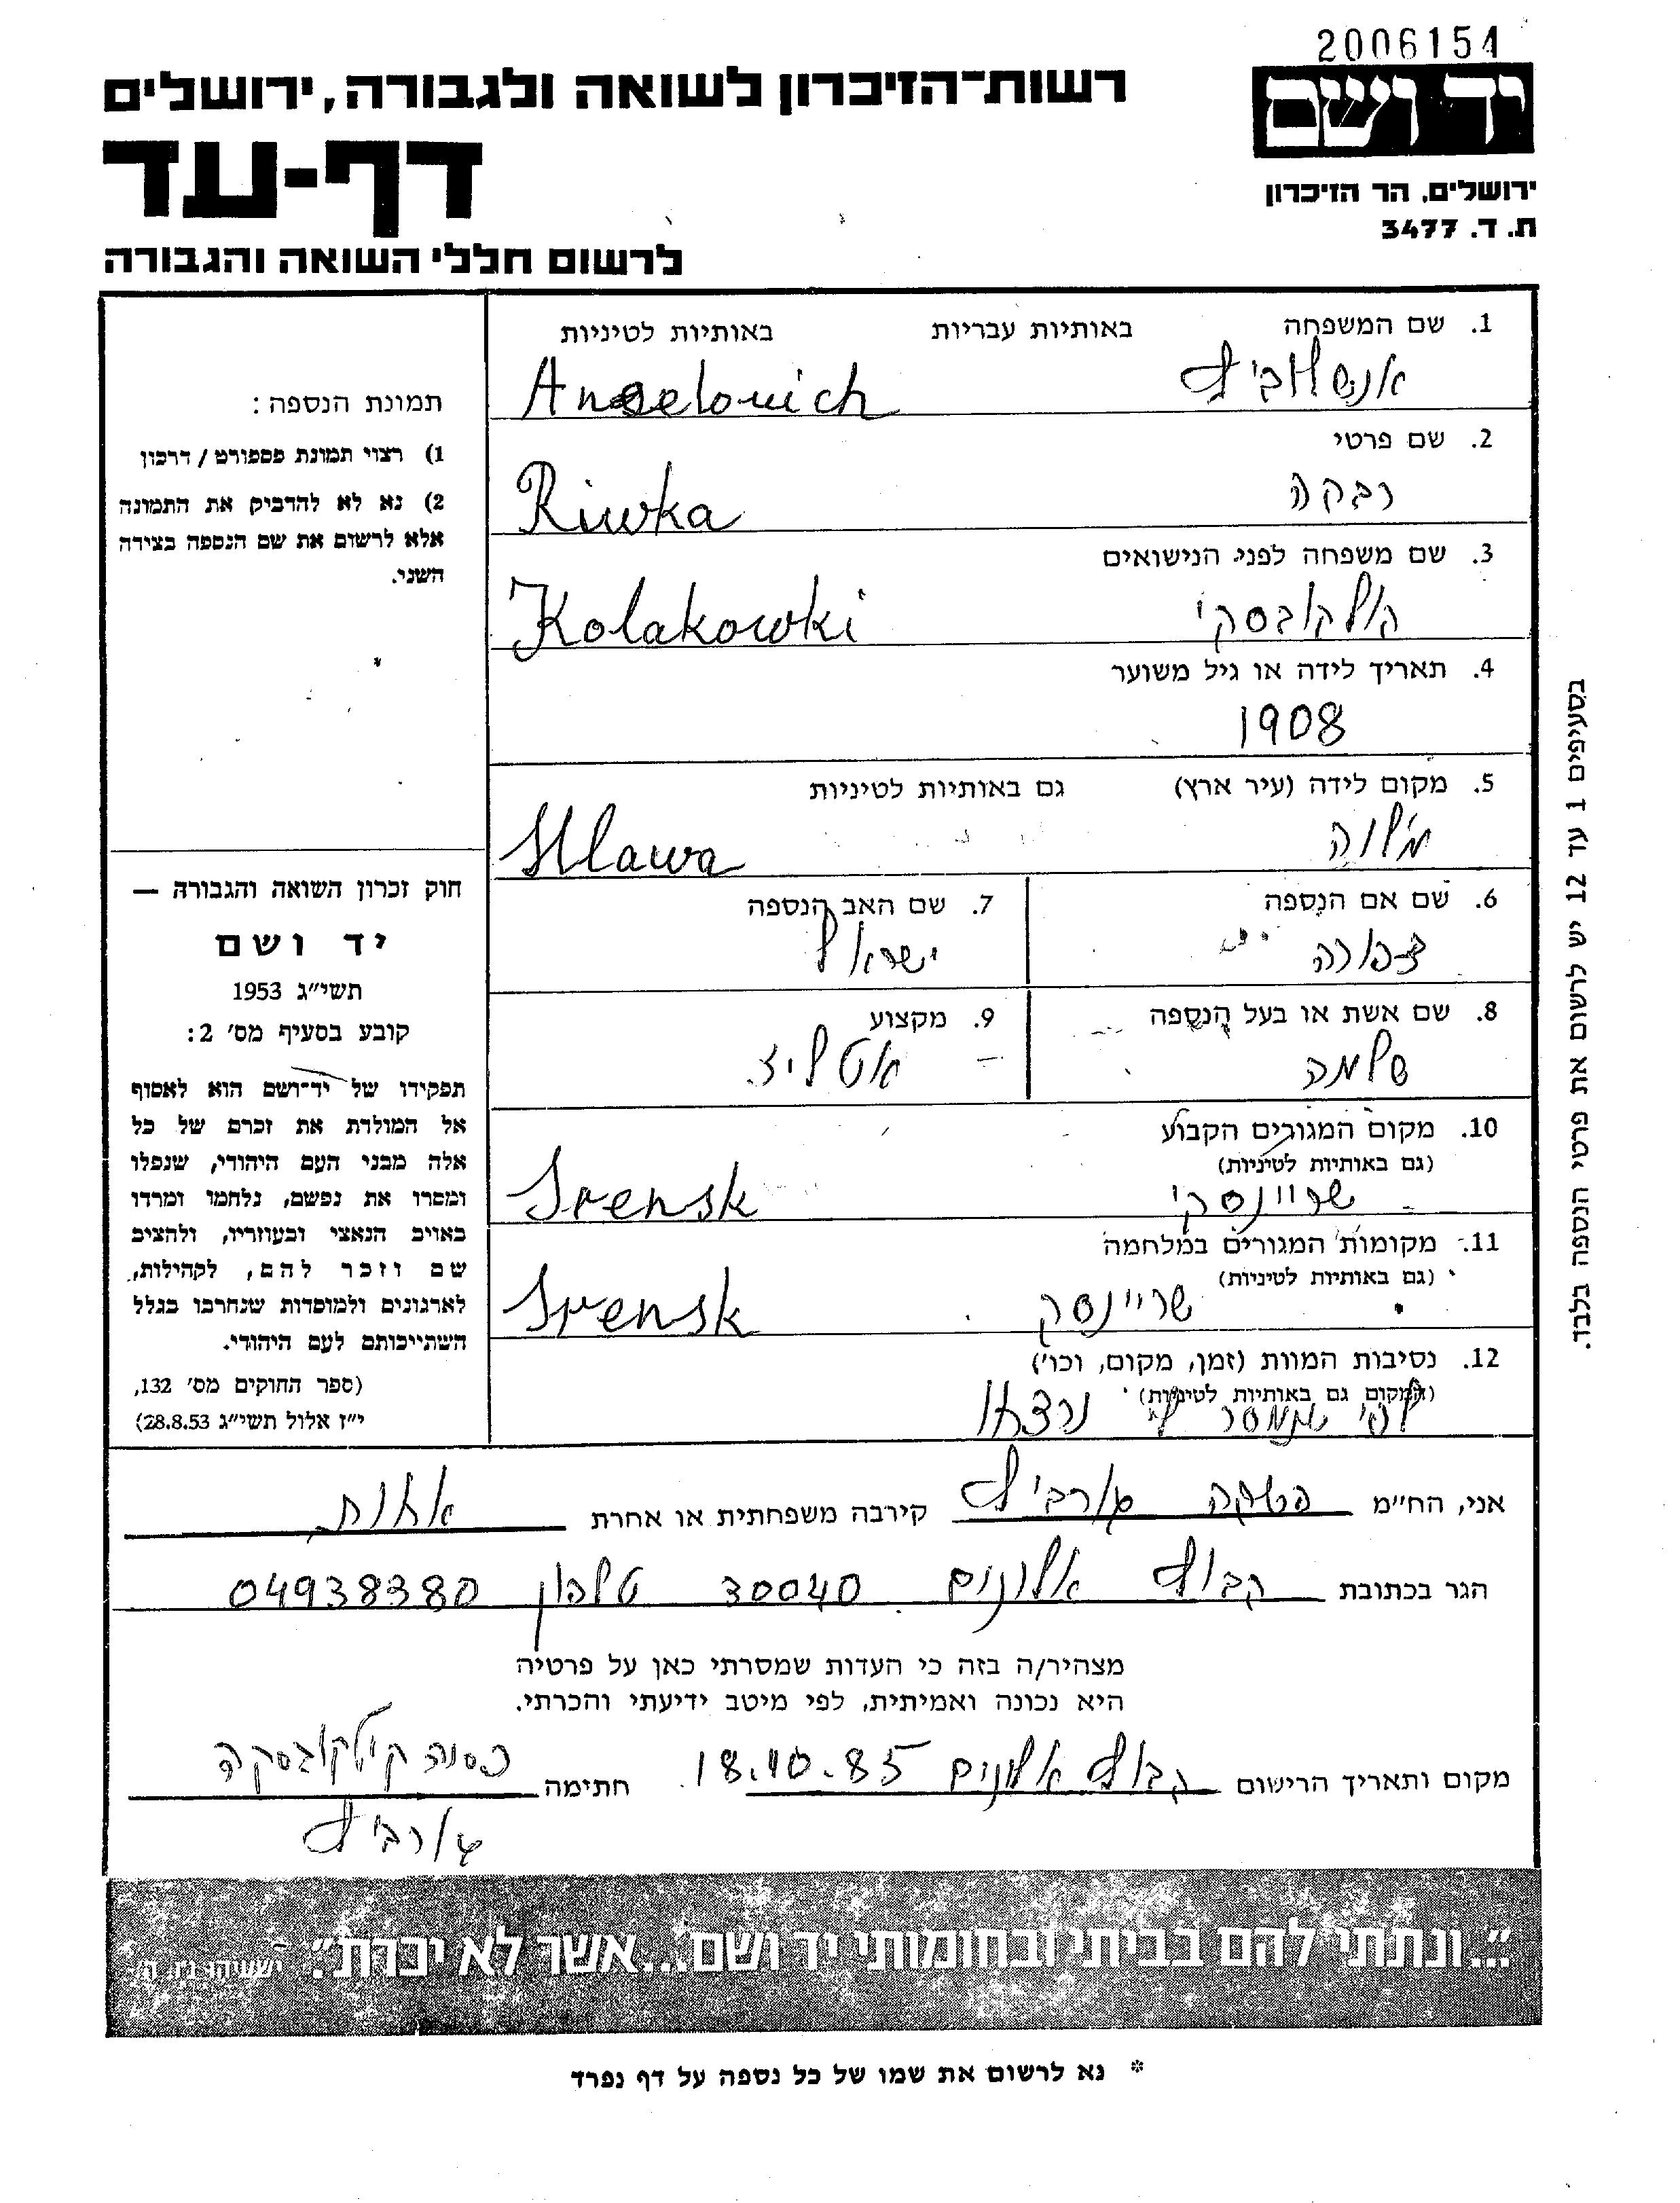 2006154
יד ושם
ירושלים. הר הזיכרון
ת. ד. 3477
רשות־הזיכרון לשואה ולגבורה, ירושלים
דף-עד
לרשום חללי השואה והגבורה
1. שם המשפחה באותיות עבריות באותיות לטיניות
Anselovich
2. שם פרטי
רבקה Riwka
3. שם משפחה לפני הנישואים
קולקובסקי Kolakowki
4. תאריך לידה או גיל משוער
1908
5. מקום לידה (עיר ארץ) גם באותיות לטיניות
מלווה Mlawa
6. שם אם הנספה 7. שם האב הנספה
צפורה ישראל
8. שם אשת או בעל הנספה 9. מקצוע
שלמה אטליז
10. מקום המגורים הקבוע
(גם באותיות לטיניות)
שריינסקי Srensk
11. מקומות המגורים במלחמה
(גם באותיות לטיניות)
שריינסק Srensk
12. נסיבות המוות (זמן, מקום, וכו')
(המקום גם באותיות לטיניות)
נרצחו
תמונת הנספה:
1) רצוי תמונת פספורט / דרכון
2) נא לא להדביק את התמונה
אלא לרשום את שם הנספה בצידה
השני.
חוק זכרון השואה והגבורה —
יד ושם
תשי״ג 1953
קובע בסעיף מס׳ 2:
תפקידו של יד־ושם הוא לאסוף
אל המולדת את זכרם של כל
אלה מבני העם היהודי, שנפלו
ומסרו את נפשם, נלחמו ומרדו
באויב הנאצי ובעוזריו, ולהציב
שם וזכר להם, לקהילות,
לארגונים ולמוסדות שנחרבו בגלל
השתייכותם לעם היהודי.
(ספר החוקים מס׳ 132,
י״ז אלול תשי״ג 28.8.53)
בסעיפים 1 עד 12 יש לרשום את פרטי הנספה בלבד.
אני, הח״מ קירבה משפחתית או אחרת אחות
הגר בכתובת קבוץ אלונים 30040 טלפון 04938380
מצהיר/ה בזה כי העדות שמסרתי כאן על פרטיה
היא נכונה ואמיתית, לפי מיטב ידיעתי והכרתי.
מקום ותאריך הרישום קבוץ אלונים 18.10.85 חתימה
״...ונתתי להם בביתי ובחומותי יד ושם...אשר לא יכרת״. ישעיהו נ״ו, ה׳
* נא לרשום את שמו של כל נספה על דף נפרד